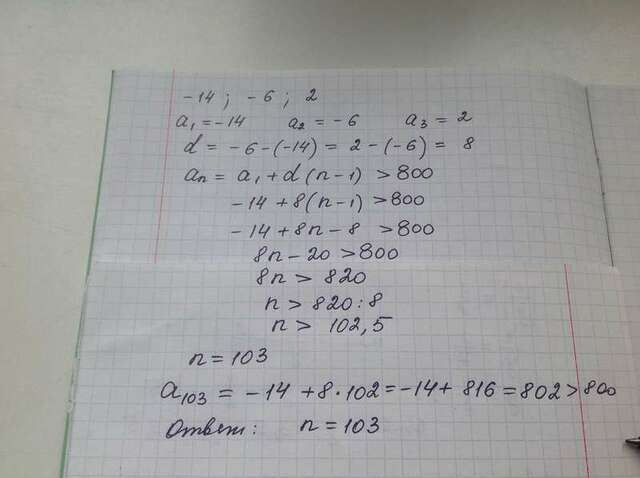 -14 ; -6 ; 2
a₁ = -14 a₂ = -6 a₃ = 2
d = -6-(-14) = 2-(-6) = 8
aₙ = a₁ + d(n-1) > 800
-14 + 8(n-1) > 800
-14 + 8n - 8 > 800
8n - 20 > 800
8n > 820
n > 820 : 8
n > 102,5
n = 103
a₁₀₃ = -14 + 8·102 = -14 + 816 = 802 > 800
Ответ: n = 103